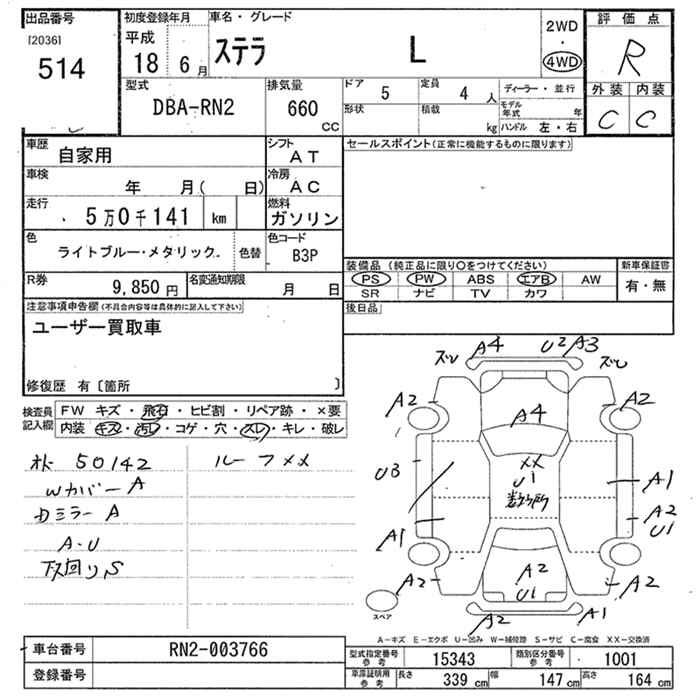 出品番号
[2036]
514
初度登録年月
平成
18 6月
車名・グレード
ステラ L
2WD
・
4WD
評価点
R
外装 内装
C C
型式
DBA-RN2
排気量
660
CC
ドア 5
定員 4 人
ディーラー・並行
形状
積載
kg
モデル年式 年
ハンドル 左・右
車歴 自家用
シフト AT
車検 年 月( 日)
冷房 AC
走行 5万0千141 km
燃料 ガソリン
色 ライトブルー・メタリック
色替
色コード B3P
R券 9,850円
名変通知期限 月 日
セールスポイント(正常に機能するものに限ります)
装備品(純正品に限り○をつけてください)
新車保証書
PS PW ABS エアB AW
有・無
SR ナビ TV カワ
後日品
注意事項申告欄(不具合内容等は具体的に記入して下さい)
ユーザー買取車
修復歴 有〔箇所 〕
検査員記入欄
FW キズ・飛石・ヒビ割・リペア跡・×要
内装 キズ・汚レ・コゲ・穴・スレ・キレ・破レ
オド 50142
ルーフメメ
Wカバー A
ドミラー A
A・U
下回り S
ズレ A4 U2 A3 ズレ
A2 A2
A4
U3
XX
U1
数ヶ所
A1
A2
U1
A1
A2 A2
A2
U1
A2 A1
スペア
A－キズ E－エクボ U－凹み W－補修跡 S－サビ C－腐食 XX－交換済
車台番号 RN2-003766
登録番号
型式指定番号 参考 15343
類別区分番号 参考 1001
車庫証明用 参考 長さ 339 cm 幅 147 cm 高さ 164 cm